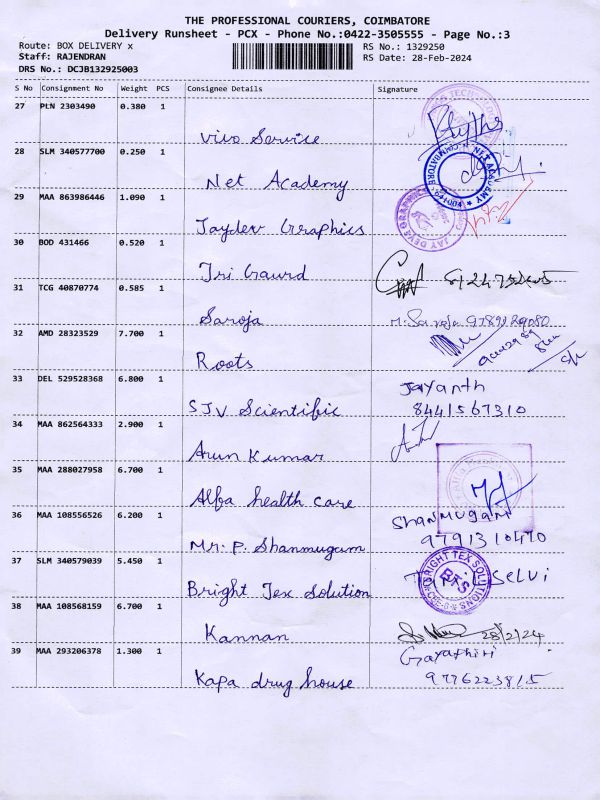 THE PROFESSIONAL COURIERS, COIMBATORE
Delivery Runsheet - PCX - Phone No.:0422-3505555 - Page No.:3
Route: BOX DELIVERY x
RS No.: 1329250
Staff: RAJENDRAN
RS Date: 28-Feb-2024
DRS No.: DCJB132925003
S No Consignment No Weight PCS Consignee Details Signature
27 PLN 2303490 0.380 1
Vivo Service
28 SLM 340577700 0.250 1
Net Academy
NET ACADEMY
COIMBATORE 641004
29 MAA 863986446 1.090 1
Jaydev Graphics
JAY DEV GRAPHICS
30 BOD 431466 0.520 1
Tri Gaurd
31 TCG 40870774 0.585 1
Saroja
M. Saroja
32 AMD 28323529 7.700 1
Roots
33 DEL 529528368 6.800 1
Jayanth
SJV Scientific 8441567310
34 MAA 862564333 2.900 1
Arun Kumar
35 MAA 288027958 6.700 1
Alfa health care
36 MAA 108556526 6.200 1
SHANMUGAM
Mr. P. Shanmugam 9791310470
37 SLM 340579039 5.450 1
BRIGHT TEX SOLUTIONS
BTS
Bright Tex Solution
38 MAA 108568159 6.700 1
Kannan 28/2/24
39 MAA 293206378 1.300 1
Gayathiri
Kapa drug house